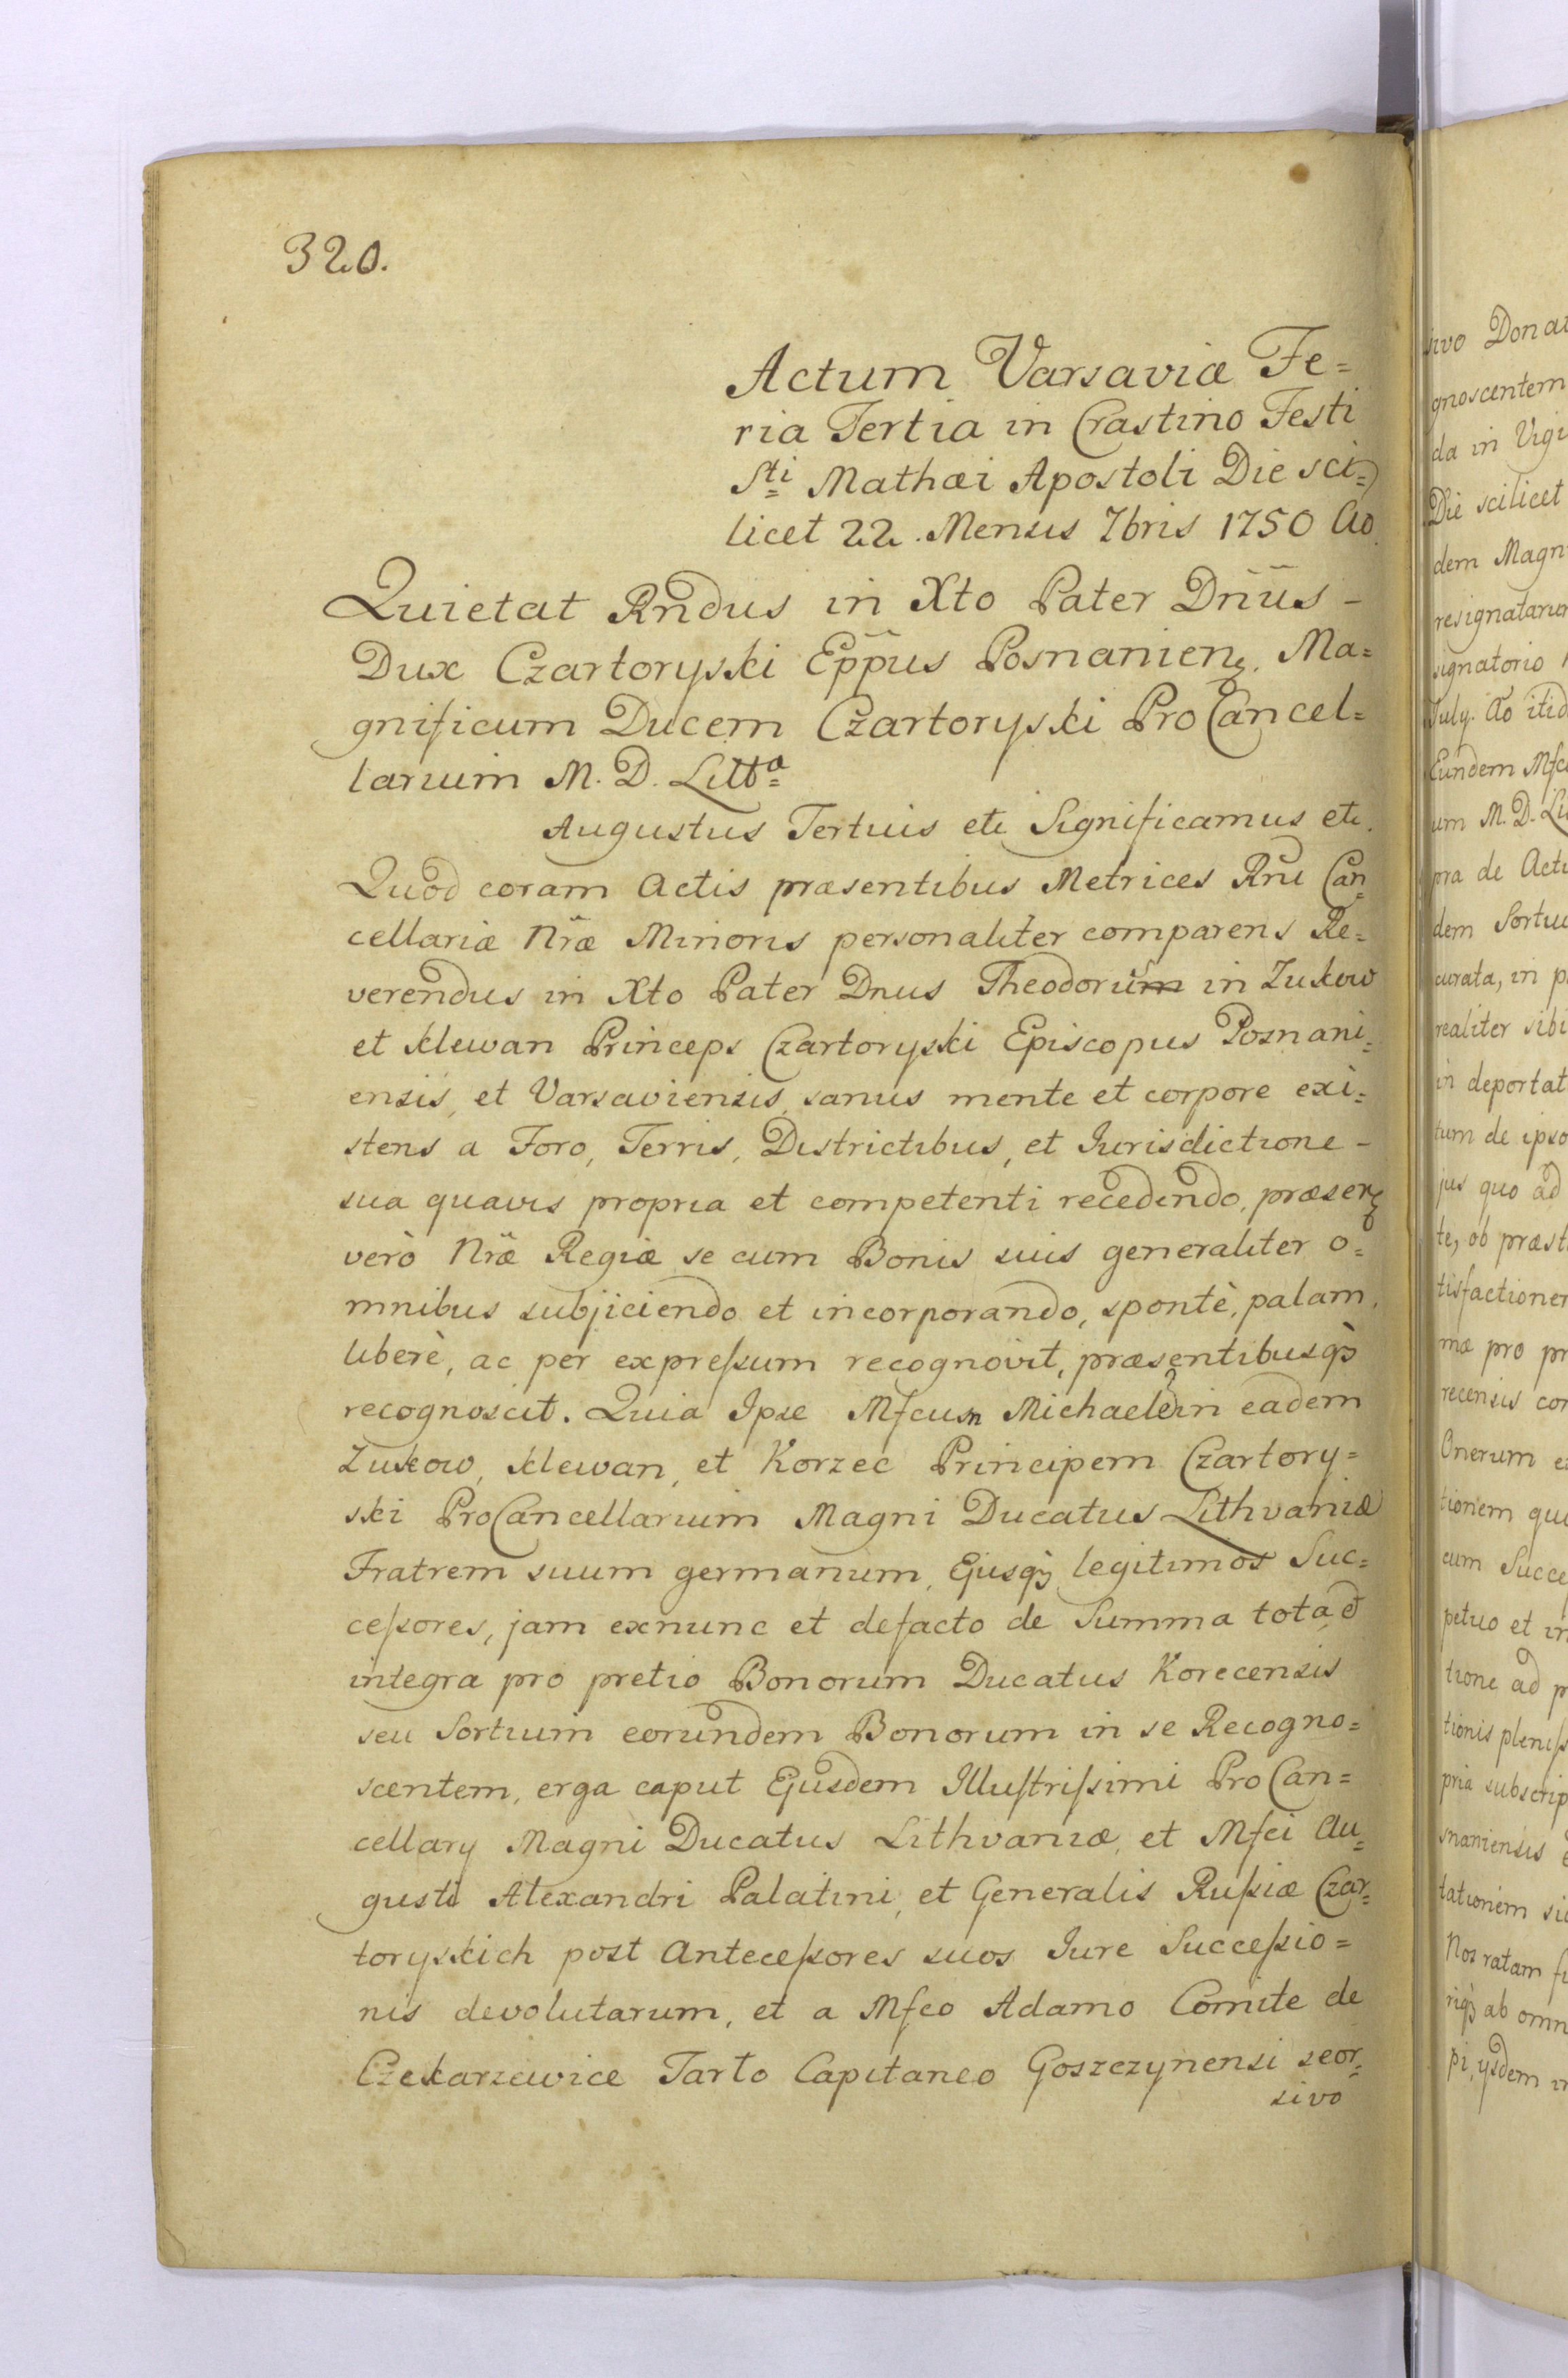 320.
Actum Varsaviæ Fe=
ria Tertia in Crastino Festi
Sti Mathæi Apostoli Die sci=
licet 22. Mensis 7bris 1750 Ao.
Quietat Rndus in Xto Pater Dnūs -
Dux Czartoryski Epp̄us Posnanien. Ma=
gnificum Ducem Czartoryski ProCancel=
larium M. D. Littᵃ
Augustus Tertius etc Significamus etc.
Quod coram Actis præsentibus Metrices Rni Can=
cellariæ Nræ Minoris personaliter comparens Re=
verendus in Xto Pater Dnus Theodorum in Zukow
et Klewan Princeps Czartoryski Episcopus Poznani=
ensis, et Varsaviensis, sanus mente et corpore exi=
stens a Foro, Terris, Districtibus, et Jurisdictione -
sua quavis propria et competenti recedendo, præsen
verò Nræ Regiæ se cum Bonis suis generaliter o=
mnibus subjiciendo et incorporando, spontè, palam,
liberè, ac per expreſsum recognovit, præsentibusq̀
recognoscit. Quia Ipse Mfcum Michaelem in eadem
Zukow, Klewan, et Korzec Principem Czartory=
ski ProCancellarium Magni Ducatus Lithvaniæ
Fratrem suum germanum, Ejusq̀ legitimos Suc=
ceſsores, jam exnunc et defacto de Summa tota et
integra pro pretio Bonorum Ducatus Korecensis
seu Sortium eorundem Bonorum in se Recogno=
scentem, erga caput Ejusdem Illuſtriſsimi ProCan=
cellary Magni Ducatus Lithvaniæ, et Mfci Au=
gusti Alexandri Palatini, et Generalis Ruſsiæ Czar=
toryskich post Anteceſsores suos Jure Succeſsio=
nis devolutarum, et a Mfco Adamo Comite de
Czekarzewice Tarło Capitaneo Goszczynensi seor=
sivo
sivo Donat
gnoscentem
da in Vigi
Die scilicet
dem Magn
resignatarum
signatorio
July. Ao itid
Eundem Mfc
um M. D. Li
pra de Actu
dem Sortiu
curata, in p
realiter sibi
in deportat
tum de ipso
jus quo ad
te, ob præst
tisfactionem
mæ pro pr
recensis con
Onerum e
tionem qu
cum Succe
petuo et in
tione ad p
tionis pleniſs
pria subscrip
snaniensis
tationem si
Nos ratam f
riq̀ ab omn
pi, ysdem in